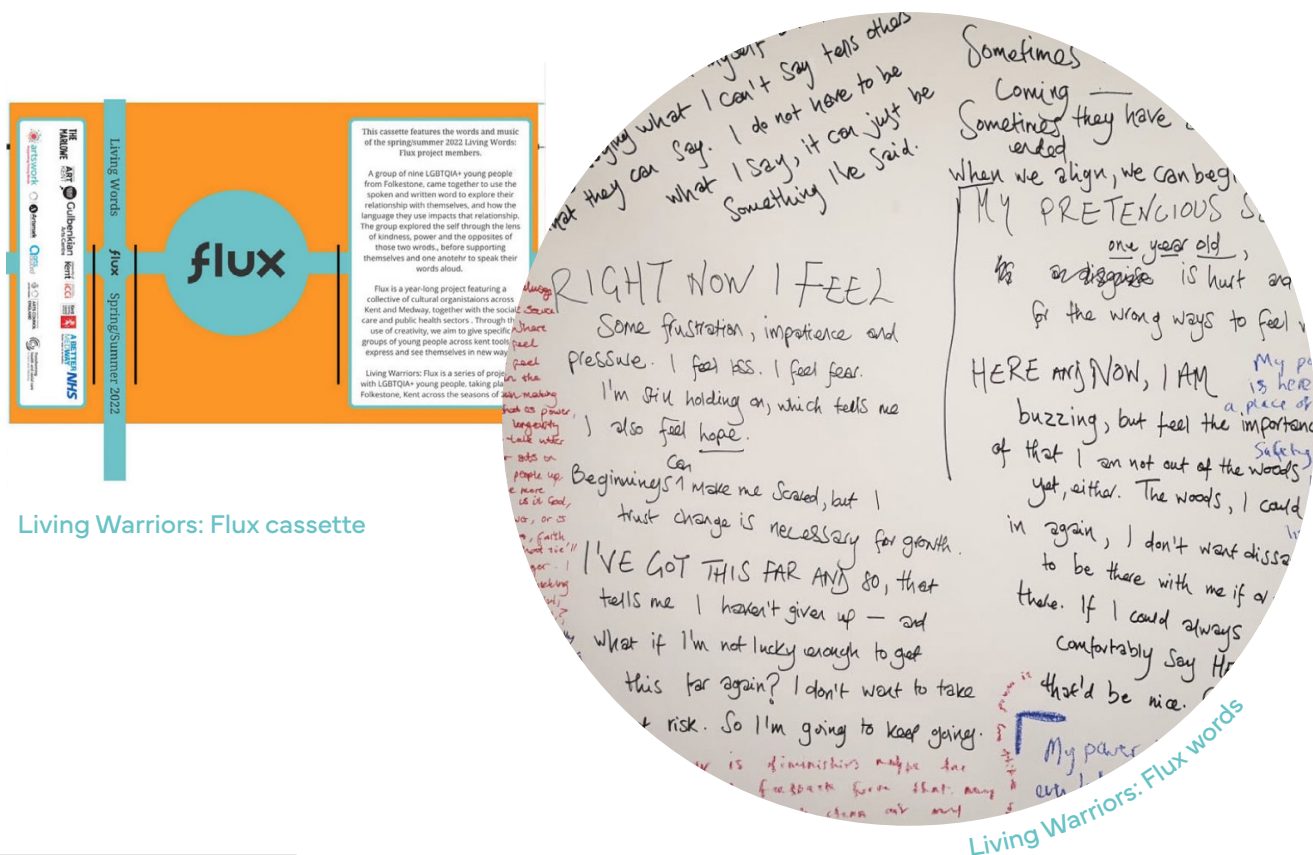 THE MARLOWE
ART
Gulbenkian
Arts Centre
Kent
icci
A BETTER
MEDWAY
NHS
artswork
Artsmark
ARTS COUNCIL
ENGLAND
Living Words
flux
Spring/Summer 2022
flux
This cassette features the words and music
of the spring/summer 2022 Living Words:
Flux project members.
A group of nine LGBTQIA+ young people
from Folkestone, came together to use the
spoken and written word to explore their
relationship with themselves, and how the
language they use impacts that relationship.
The group explored the self through the lens
of kindness, power and the opposites of
those two words., before supporting
themselves and one anotehr to speak their
words aloud.
Flux is a year-long project featuring a
collective of cultural organistaions across
Kent and Medway, together with the social
care and public health sectors . Through th
use of creativity, we aim to give specific
groups of young people across kent tools
express and see themselves in new way
Living Warriors: Flux is a series of proje
with LGBTQIA+ young people, taking pla
Folkestone, Kent across the seasons of
Living Warriors: Flux cassette
what I can't say tells others
they can say. I do not have to be
what I say, it can just be
Something I've said.
RIGHT NOW I FEEL
Some frustration, impatience and
pressure. I feel loss. I feel fear.
I'm still holding on, which tells me
I also feel hope.
can
Beginnings make me scared, but I
trust change is necessary for growth.
I'VE GOT THIS FAR AND SO, that
tells me I haven't given up — and
what if I'm not lucky enough to get
this far again? I don't want to take
risk. So I'm going to keep going.
Sometimes
Coming
Sometimes they have
ended
when we align, we can beg
MY PRETENCIOUS
one year old,
is hurt and
for the wrong ways to feel
HERE AND NOW, I AM
buzzing, but feel the importanc
of that I am not out of the woods
yet, either. The woods, I could
in again, I don't want dissa
to be there with me if
there. If I could always
comfortably say
that'd be nice.
My
is here
a place of
Safety
My power
is diminishing maybe the
feedback from that. may
Where
feel
feel
in the
making
as power,
longevity
people up
more
is it God,
or is
faith
Living Warriors: Flux words